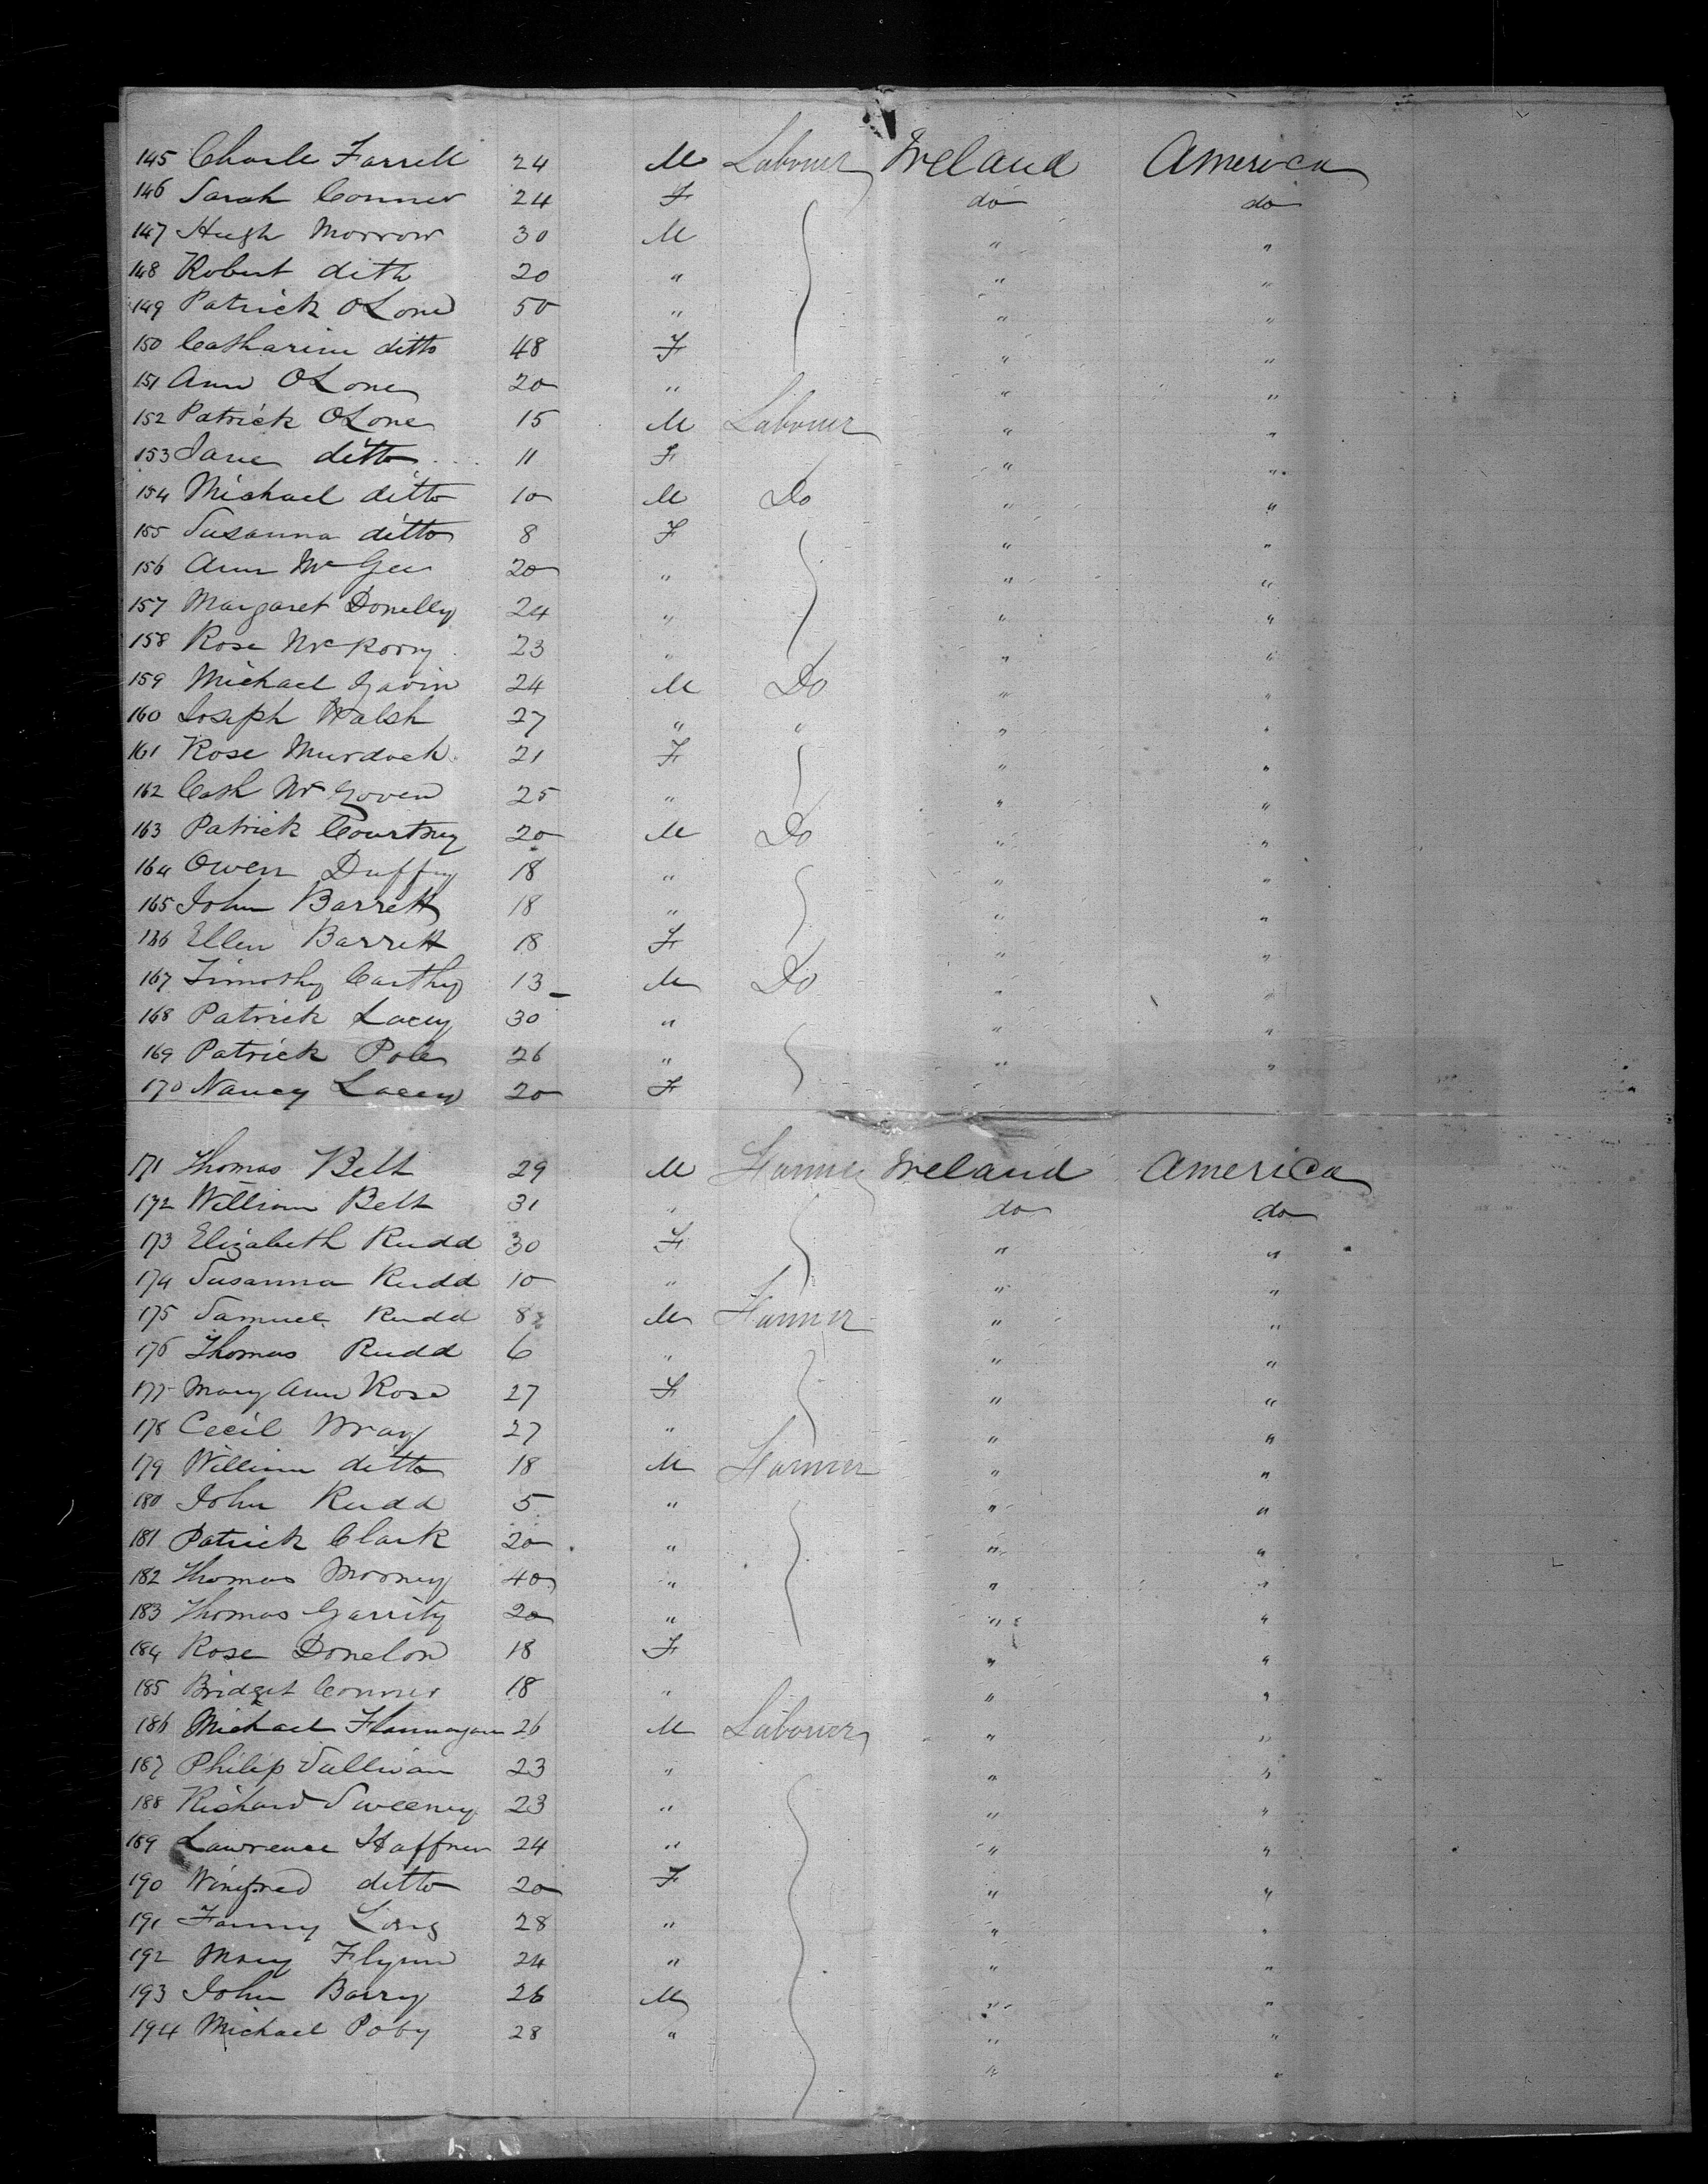 145 Charle Farrell 24 M Labourer Ireland America
146 Sarah Conner 24 F do do
147 Hugh Morrow 30 M " "
148 Robert ditto 20 " " "
149 Patrick OLone 50 " " "
150 Catharine ditto 48 F " "
151 Ann OLone 20 " " "
152 Patrick OLone 15 M Labourer " "
153 Jane ditto 11 F " "
154 Michael ditto 10 M Do " "
155 Susanna ditto 8 F " "
156 Ann McGee 20 " " "
157 Margaret Donelly 24 " " "
158 Rose McRorry 23 " " "
159 Michael Gavin 24 M Do " "
160 Joseph Walsh 27 " " " "
161 Rose Murdock 21 F " "
162 Cath McGoven 25 " " "
163 Patrick Courtney 20 M Do " "
164 Owen Duffy 18 " " "
165 John Barrett 18 " " "
166 Ellen Barrett 18 F " "
167 Timothy Carthy 13 M Do " "
168 Patrick Lacey 30 " " "
169 Patrick Pole 26 " " "
170 Nancy Lacey 20 F
171 Thomas Belt 29 M Farmer Ireland America
172 William Belt 31 " do do
173 Elizabeth Rudd 30 F " "
174 Susanna Rudd 10 " " "
175 Samuel Rudd 8 M Farmer " "
176 Thomas Rudd 6 " " "
177 Mary Ann Rose 27 F " "
178 Cecil Wray 27 " " "
179 William ditto 18 M Farmer " "
180 John Rudd 5 " " "
181 Patrick Clark 20 " " "
182 Thomas Mooney 40 " " "
183 Thomas Garrity 20 " " "
184 Rose Donelon 18 F " "
185 Bridget Conner 18 " " "
186 Michael Flannagan 26 M Labourer " "
187 Philip Sullivan 23 " " "
188 Richard Sweeney 23 " " "
189 Lawrence Haffner 24 " " "
190 Winifred ditto 20 F " "
191 Fanny Long 28 " " "
192 Mary Flynn 24 " " "
193 John Barry 26 M " "
194 Michael Poby 28 " " "
" "